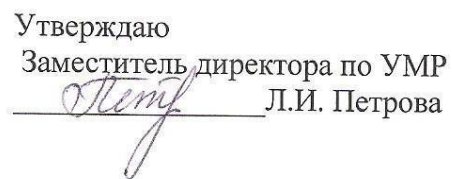 Утверждаю
Заместитель директора по УМР
Петр Л.И. Петрова